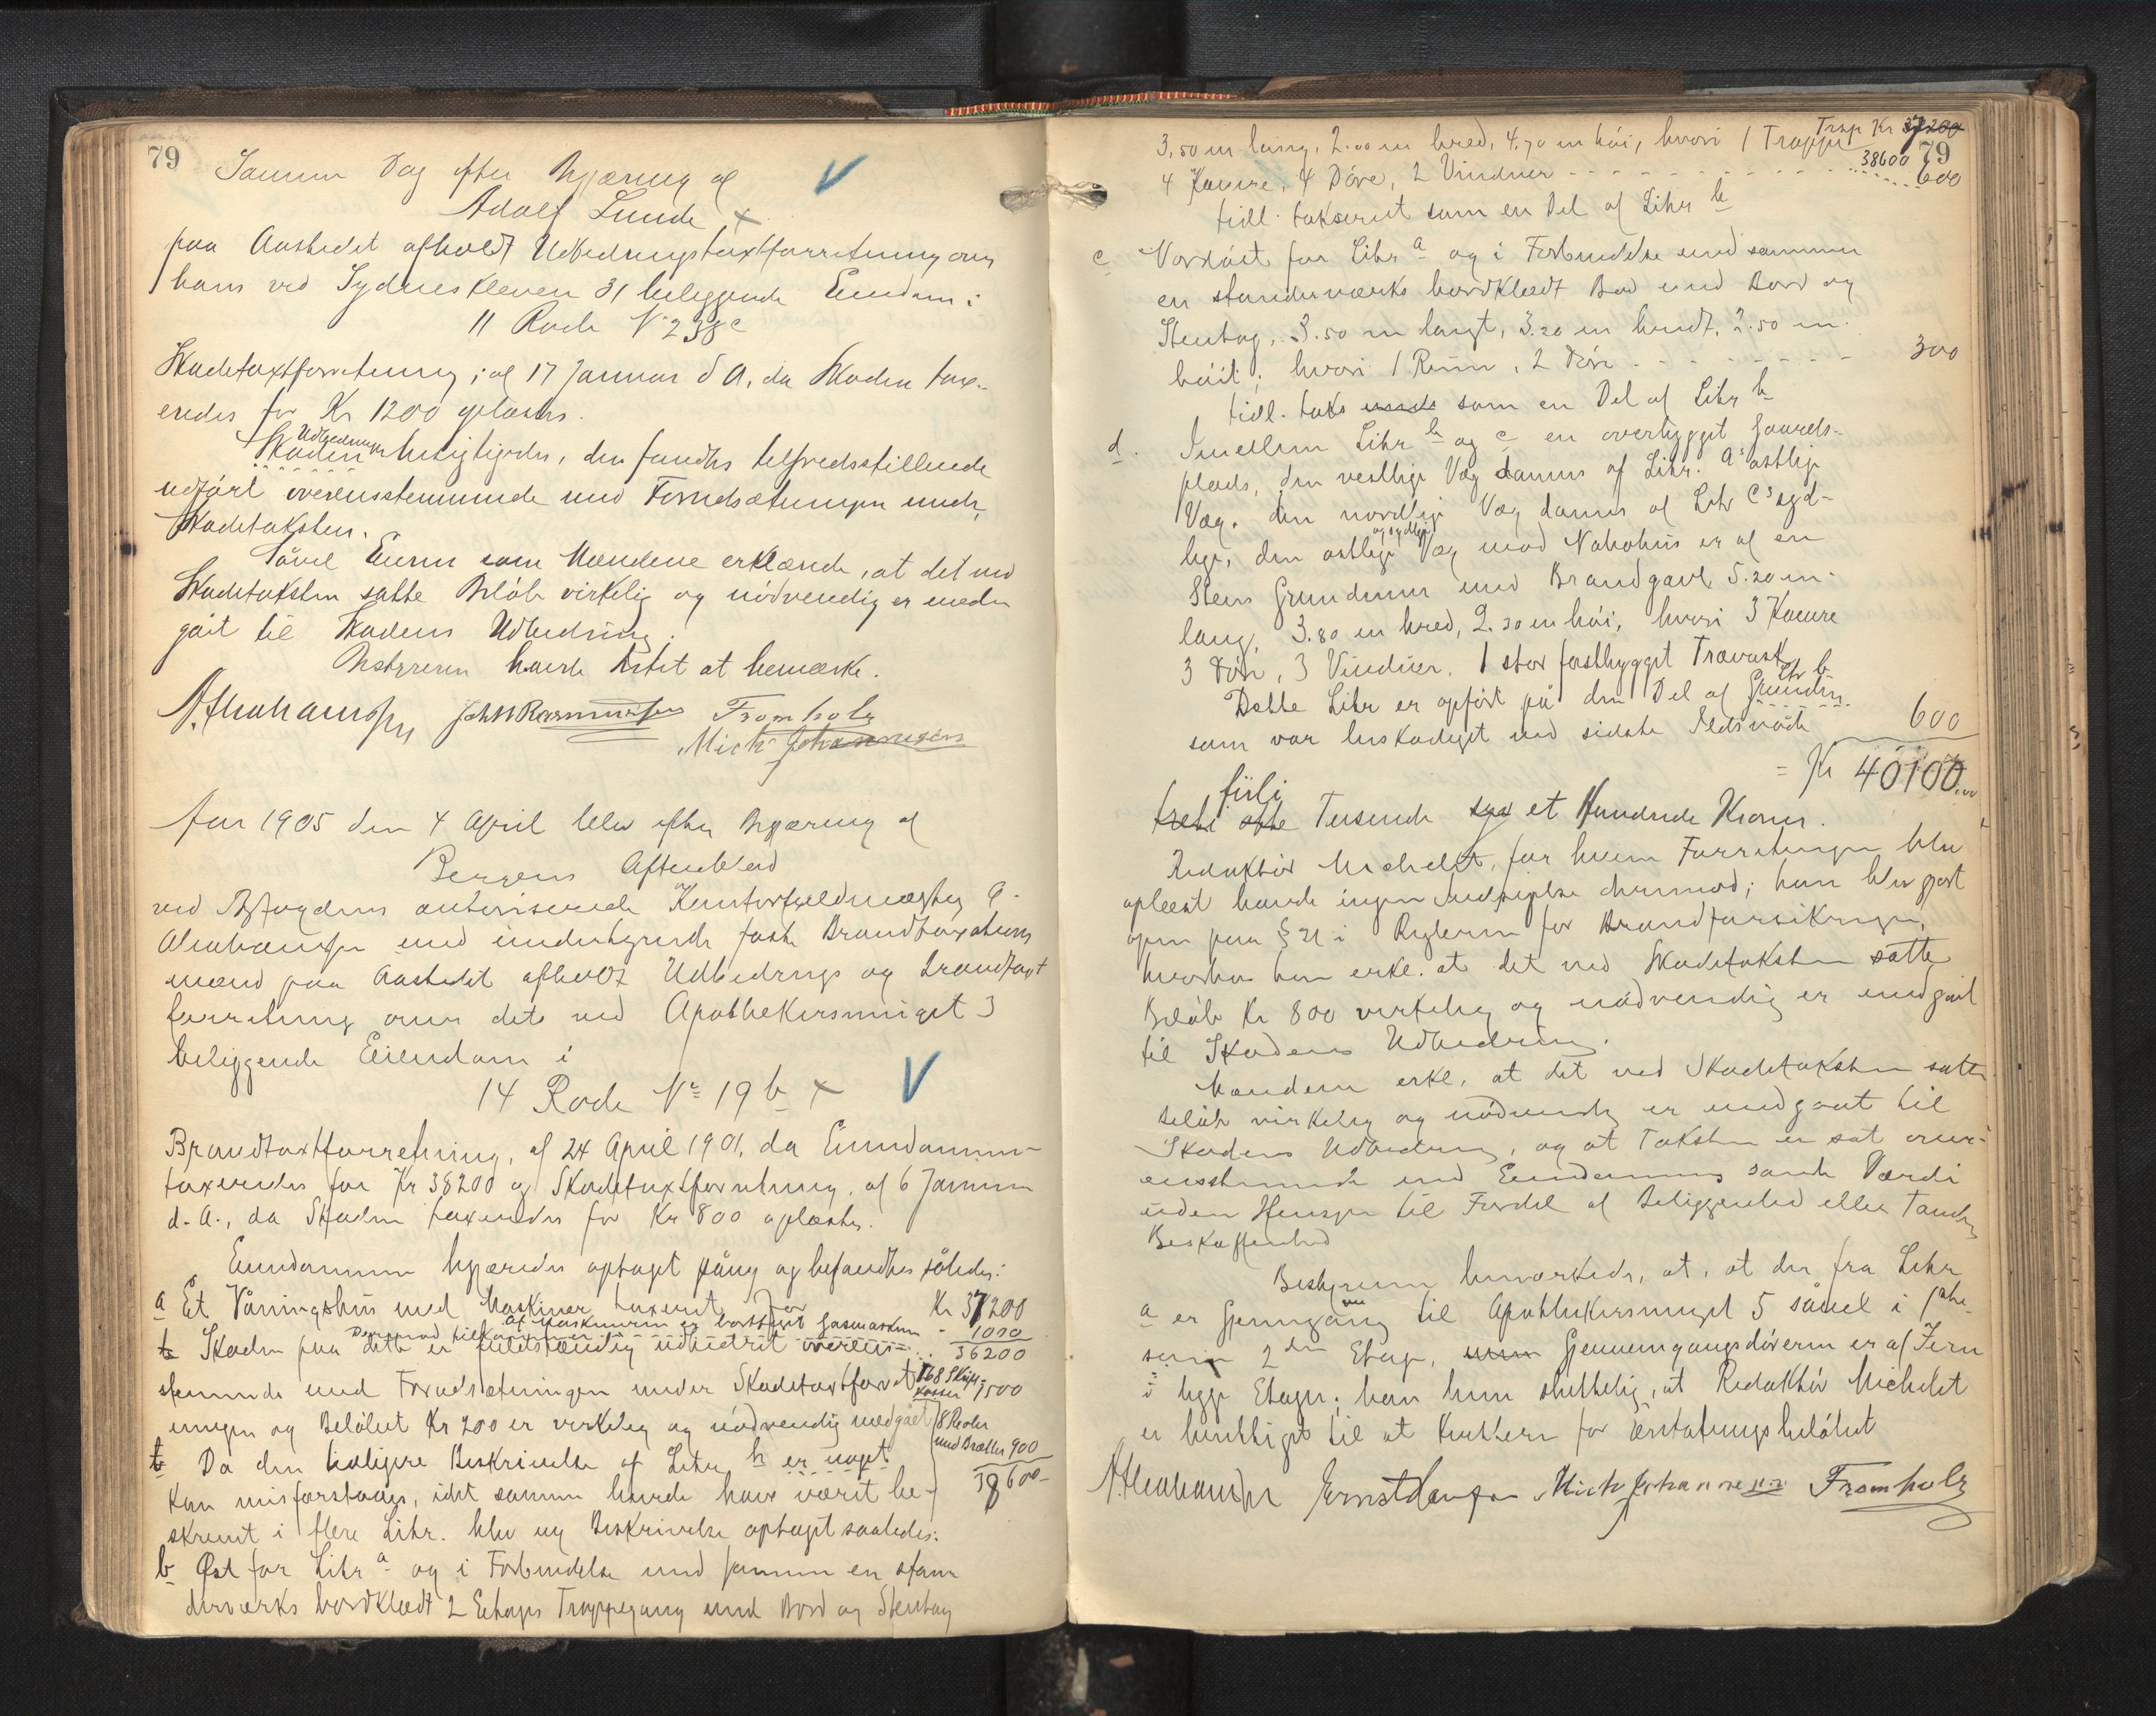 79
Samme Dag efter Begjæring af
Adolf Lunde
paa Aastedet afholdt Udbedringstaxtforretning over
hans ved Sydneskleven 31 beliggende Eiendom i
11 Rode No 238c
Skadetaxtforretning, af 17 Januar d A, da Skaden tax-
eredes for Kr 1200 oplæstes.
Skaden Udbedringen besigtigedes, den fandtes tilfredsstillende
udført overensstemmende med Forudsætningen under
Skadetaksten.
Såvel Eieren som Mændene erklærede, at det ved
Skadetaksten satte Beløb virkelig og nødvendig er med-
gåit til Skadens Udbedring.
Bestyreren havde Intet at bemærke.
A. Abrahamsen John Rasmussen Fromholz
Mich Johannesen
Aar 1905 den 4 April blev efter Begjæring af
Bergens Aftenblad
ved Byfogdens autoriserede Kontorfuldmægtig A.
Abrahamsen med undertegnede faste Brandtaxations
mænd paa Aastedet afholdt Udbedrings og brandtaxt
forretning over dets ved Apothekersmuget 3
beliggende Eiendom i
14 Rode No 19 b
Brandtaxtforretning, af 24 April 1901, da Eiendommen
taxeredes for Kr 38200 og Skadetaxtforretning, af 6 Januar
d. A., da Skaden taxeredes for Kr 800 oplæstes.
Eiendommen begjæredes optaget påny og befandtes således:
a Et Våningshus med Maskiner taxeret for Kr 37200
af Maskinerne er borttaget Gasmaskin - 1000
Skaden paa dette er fuldstændig udbedret overens- 36200
Derimod tilkommer
stemmende med Forudsætningen under Skadetaxtforret- 168 Skrift-
kasser 1500
ningen og Beløbet Kr 200 er virkelig og nødvendig medgået 8 Reoler
med Bretter 900
b Da den tidligere Beskrivelse af Litr b er noget
38600-
kan misforstaaes, idet samme burde have været be-
skrevet i flere Litr. blev ny Beskrivelse optaget saaledes:
b Øst for Litr a og i Forbindelse med samme en stan-
derværks bordklædt 2 Etages Trappegang med Bord og Stentag
Trsp Kr 37200
38600 79
3.50 m lang, 2.00 m bred, 4.70 m høi, hvori 1 Trappe
4 Kamre, 4 Døre, 2 Vinduer - - - 600
tidl. takseret som en Del af Litr b
c Nordøst for Litr a og i Forbindelse med samme
en standerværks bordklædt Bod med Bord og
Stentag, 3.50 m langt, 3.20 m bredt, 2.50 m
høit; hvori 1 Rum, 2 Døre - - - 300
tidl. taks som en Del af Litr b
d. Imellem Litr b og c en overbygget Gaards-
plads, den vestlige Væg dannes af Litr. a's østlige
Væg. den nordlige Væg dannes af Litr c's syd-
lige, den østlige og sydlige Væg mod Nabohus er af en
Stens Grundmur med Brandgavl 5.20 m
lang, 3.80 m bred, 2.30 m høi, hvori 3 Kamre
3 Døre, 3 Vinduer. 1 stor fastbygget Trævask
Dette Litr er opført på den Del af Grunden Litr b
som var beskadiget ved sidste Ildsvåde 600
= Kr 40100.00
firti
treti otte Tusende syv et Hundrede Kroner.
Redaktør Michelet, for hvem Forretningen blev
oplæst havde ingen Indsigelse derimod; han blev gjort
opm paa § 21 i Reglerne for Brandforsikringen,
hvorhos han erkl. at det ved Skadetaksten satte
Beløb Kr 800 virkelig og nødvendig er medgåit
til Skadens Udbedring.
Mændene erkl. at det ved Skadetaksten satte
Beløb virkelig og nødvendig er medgaaet til
Skadens Udbedring, og at Taksten er sat over-
ensstemmende med Eiendommens sande Værdi
uden Hensyn til Fordel af Beliggenhed eller Tomtens
Beskaffenhed
Bestyreren bemærkede, at, at der fra Litr
a er Gjennemgang til Apothekersmuget 5 såvel i 1ste
som 2den Etage, Gjennemgangsdørerne er af Jern
i begge Etager; han hen sluttelig, at Redaktør Michelet
er berettiget til at kvittere for Erstatningsbeløbet
A. Abrahamsen Ernst Mich Johannesen Fromholz